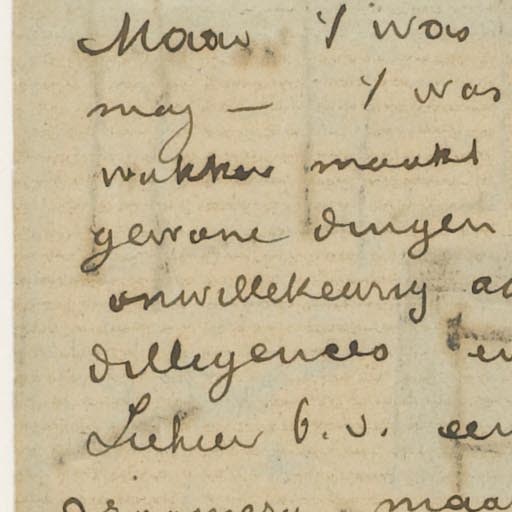 Maar 't was
mag — 't was
wakker maakt
gewone dingen
onwillekeurig
dilligences en
Ziehier b.v. een
maa